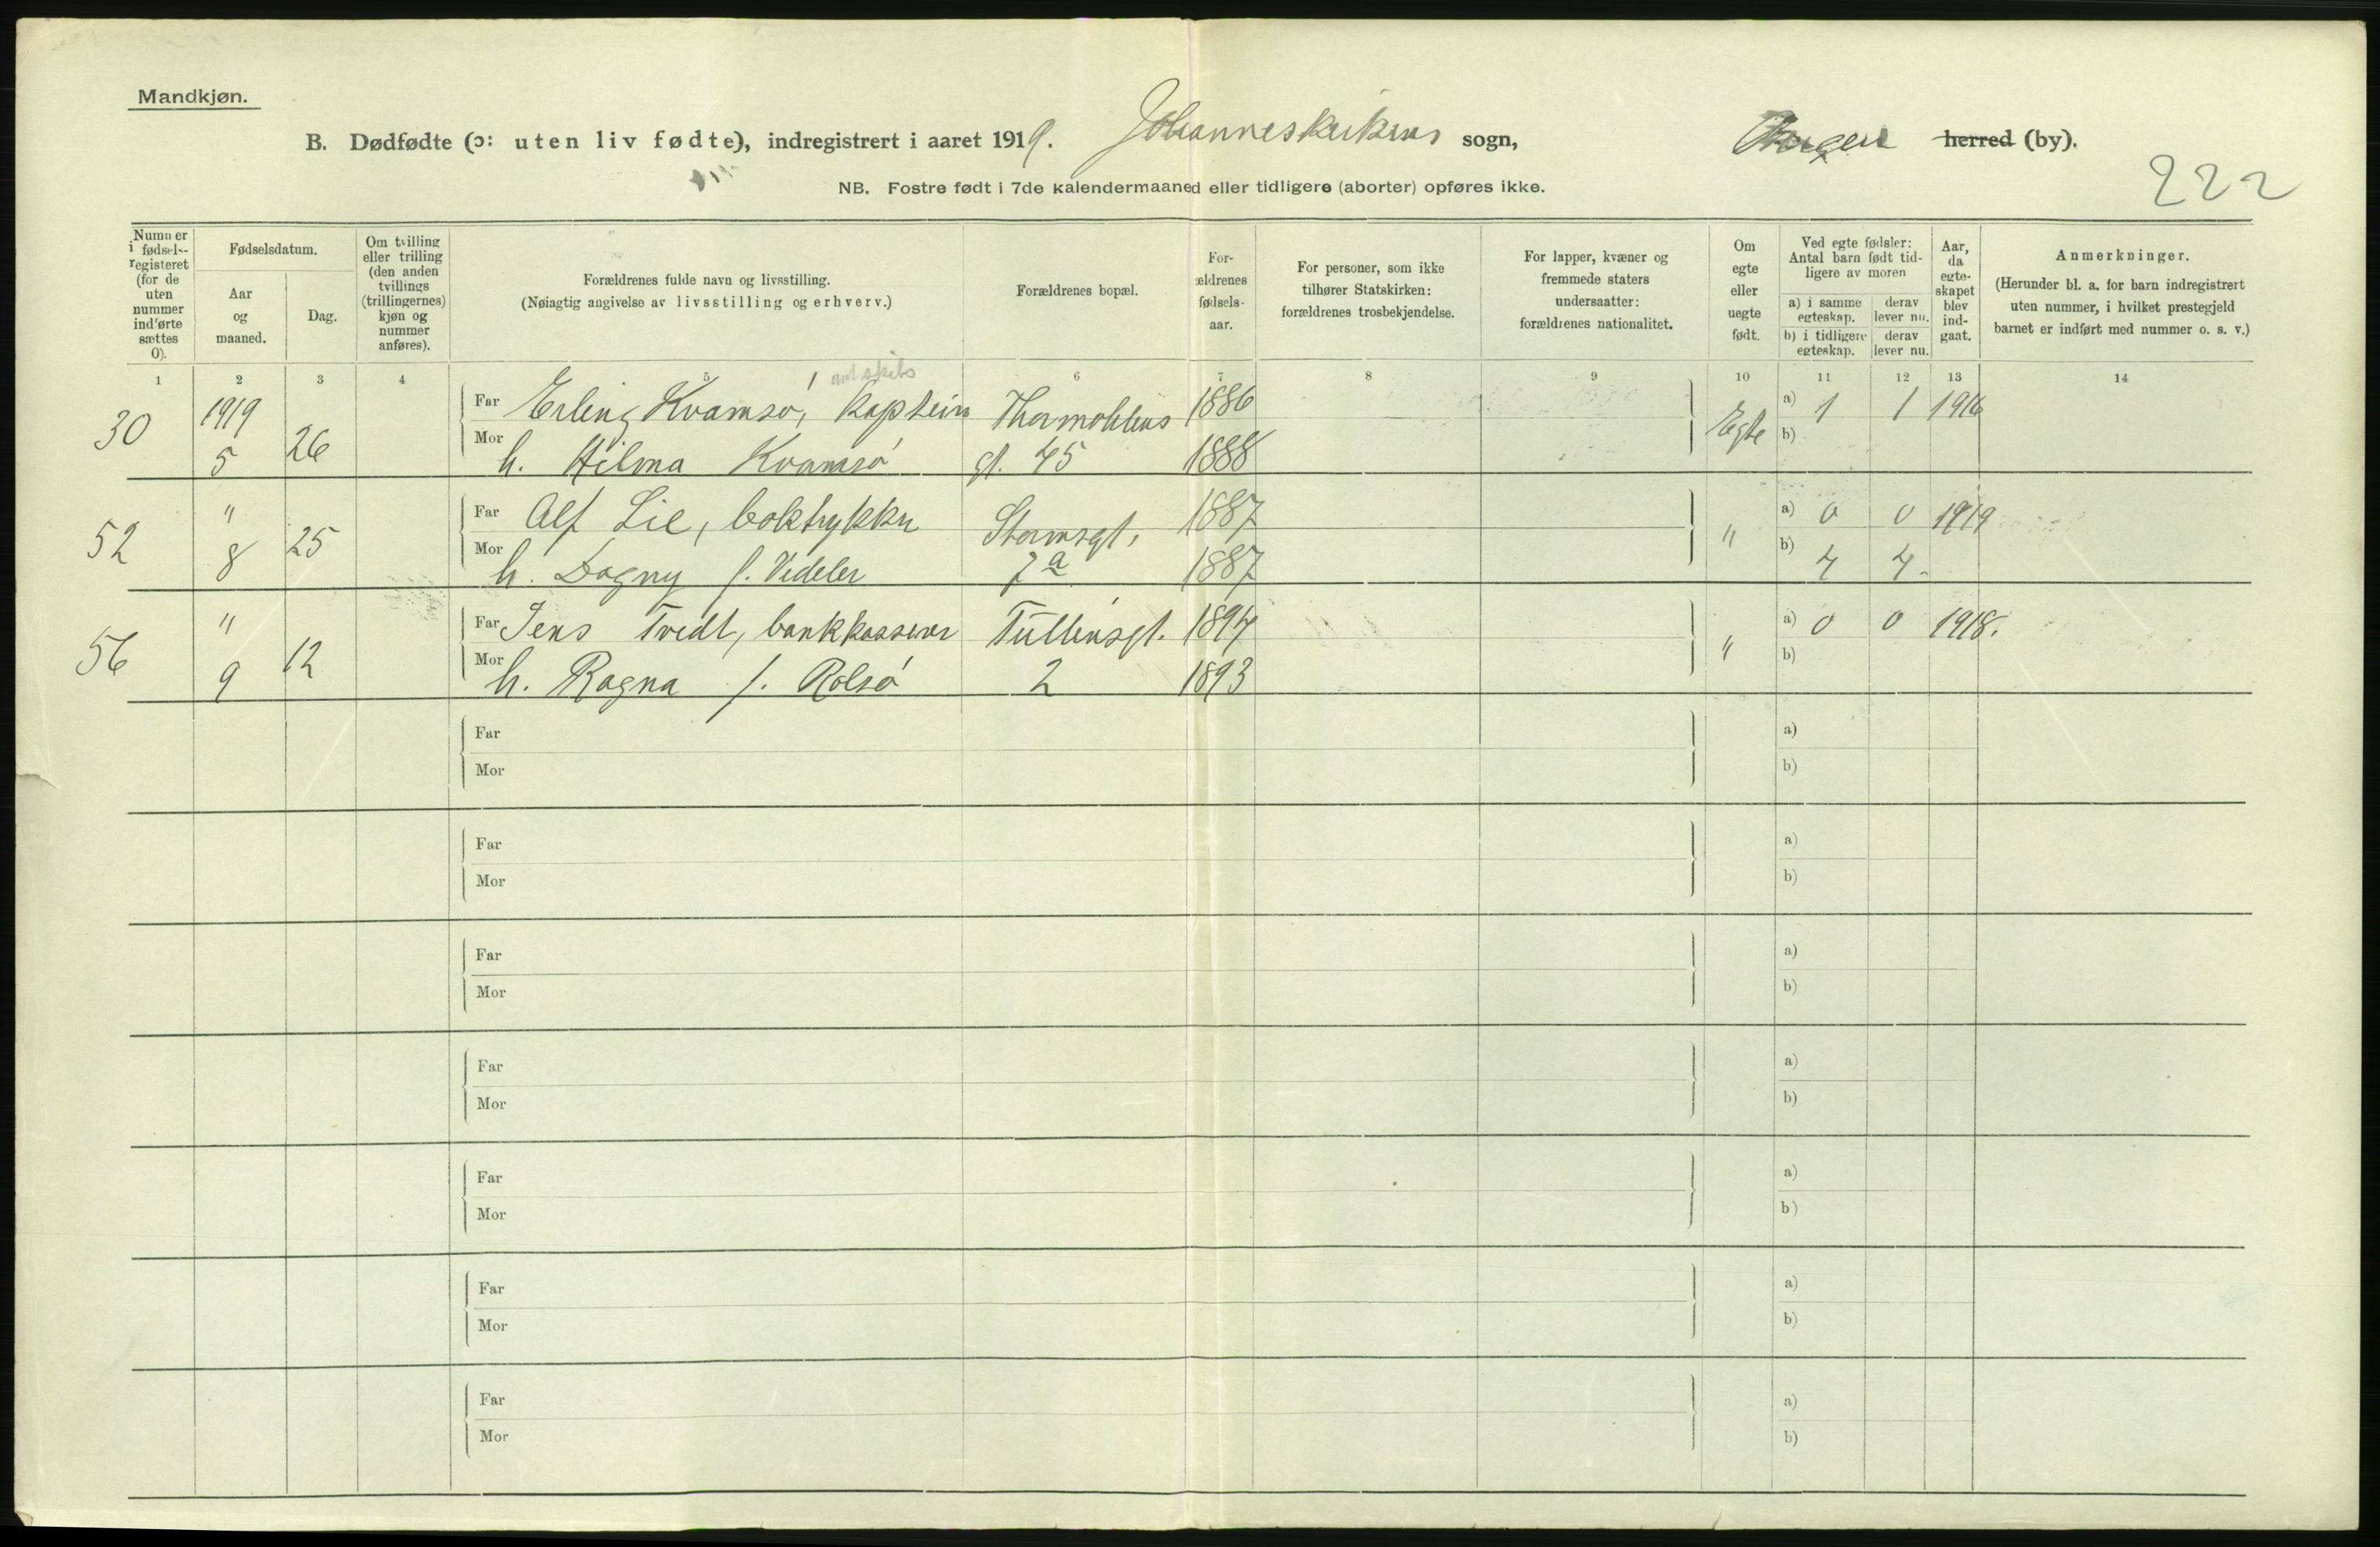 Mandkjøn.
B. Dødfødte (ɔ: uten liv fødte), indregistrert i aaret 1919. Johanneskirkens sogn, Bergen herred (by).
222
NB. Fostre født i 7de kalendermaaned eller tidligere (aborter) opføres ikke.
Nummer i fødselsregisteret (for de uten nummer indførte sættes 0).
Fødselsdatum.
Aar og maaned.
Dag.
Om tvilling eller trilling (den anden tvillings (trillingernes) kjøn og nummer anføres).
Forældrenes fulde navn og livsstilling.
(Nøiagtig angivelse av livsstilling og erhverv.)
Forældrenes bopæl.
Forældrenes fødselsaar.
For personer, som ikke tilhører Statskirken: forældrenes trosbekjendelse.
For lapper, kvæner og fremmede staters undersaatter: forældrenes nationalitet.
Om egte eller uegte født.
Ved egte fødsler: Antal barn født tidligere av moren
a) i samme egteskap. derav lever nu.
b) i tidligere egteskap. derav lever nu.
Aar, da egteskapet blev indgaat.
Anmerkninger.
(Herunder bl. a. for barn indregistrert uten nummer, i hvilket prestegjeld barnet er indført med nummer o. s. v.)
1 2 3 4 5 6 7 8 9 10 11 12 13 14
30 1919 26 Far Erling Kvamsø, kaptein Thormøhlens 1886 Egte a) 1 1 1916
5 Mor h. Hilma Kvamsø gt. 45 1888 b)
52 " 25 Far Alf Lie, boktrykker Stormsgt. 1887 " a) 0 0 1919
8 Mor h. Dagny f. Videler 7a 1887 b) 4 4
56 " 12 Far Jens Tvedt, bankkasserer Tullinsgt. 1894 " a) 0 0 1918.
9 Mor h. Ragna f. Rolsø 2 1893 b)
Far a)
Mor b)
Far a)
Mor b)
Far a)
Mor b)
Far a)
Mor b)
Far a)
Mor b)
Far a)
Mor b)
Far a)
Mor b)